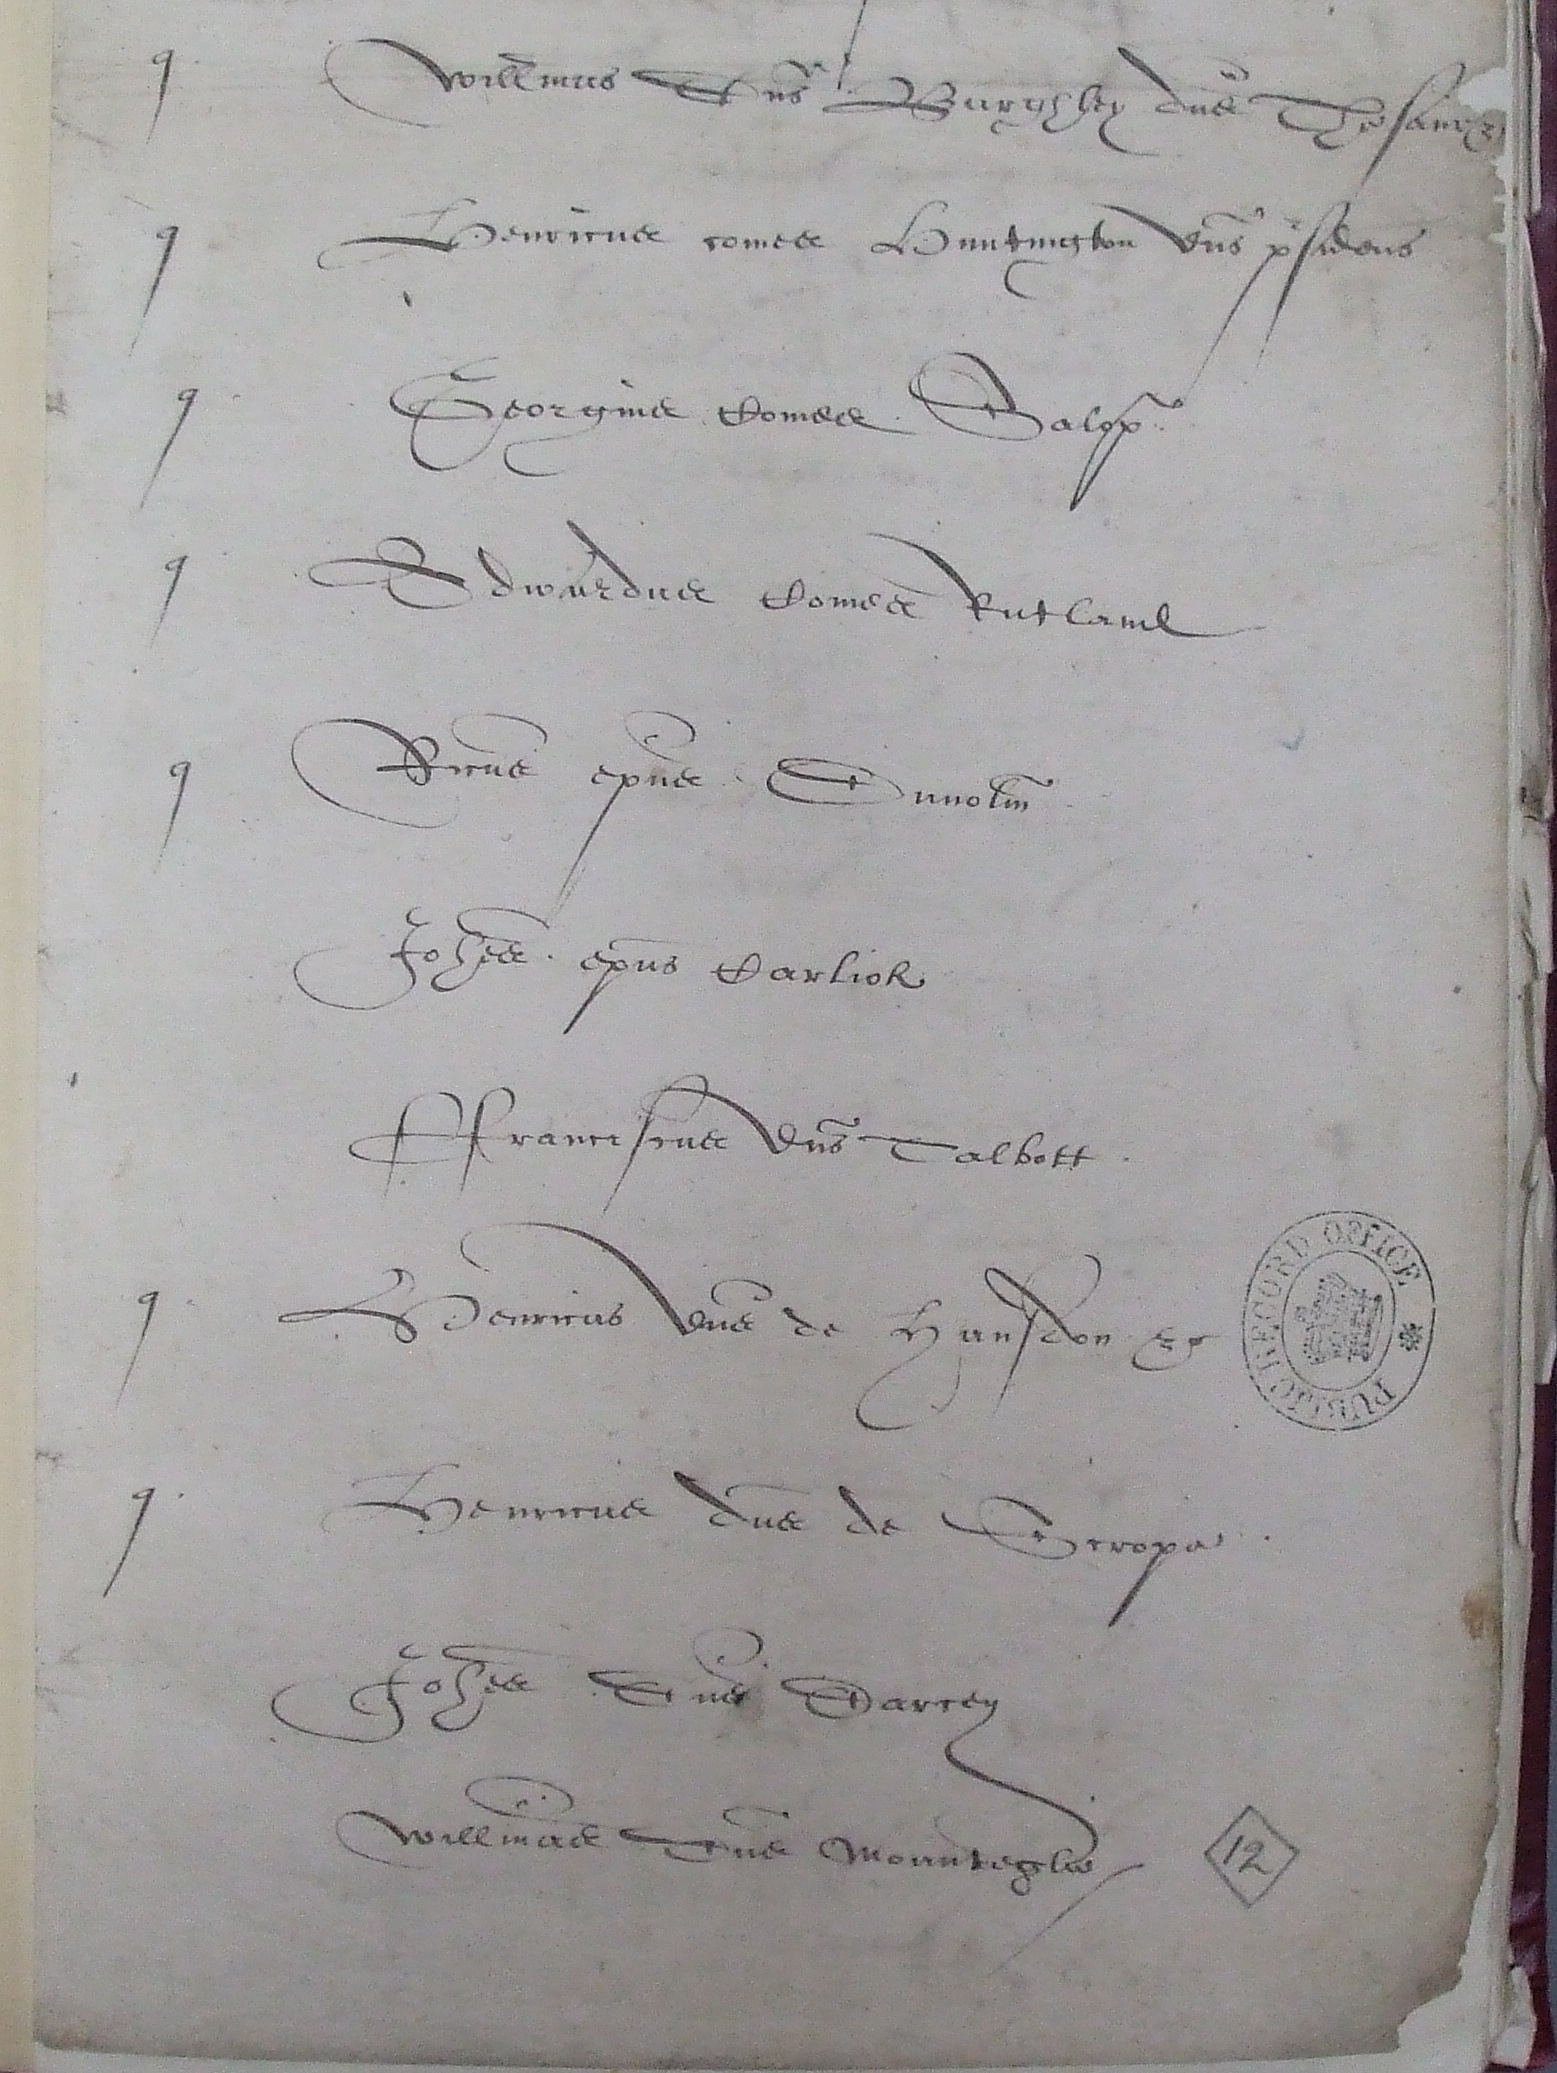 q Willm̄us Dn̄s Burghley dn̄s Thesaur
q Henricus comes Huntington dn̄s p̄sidens
q Georgius Comes Salop
q Edwardus Comes Rutland
q Ric̄us ep̄us Dunolm̄
Joh̄es ep̄us Carliol
Ffranciscus dn̄s Talbott
q Henricus dn̄s de Hunsdon &c
q Henricus dn̄s de Scrope
Joh̄es Dn̄s Darcey
Willm̄us Dn̄s Mountegle
PUBLIC RECORD OFFICE
12